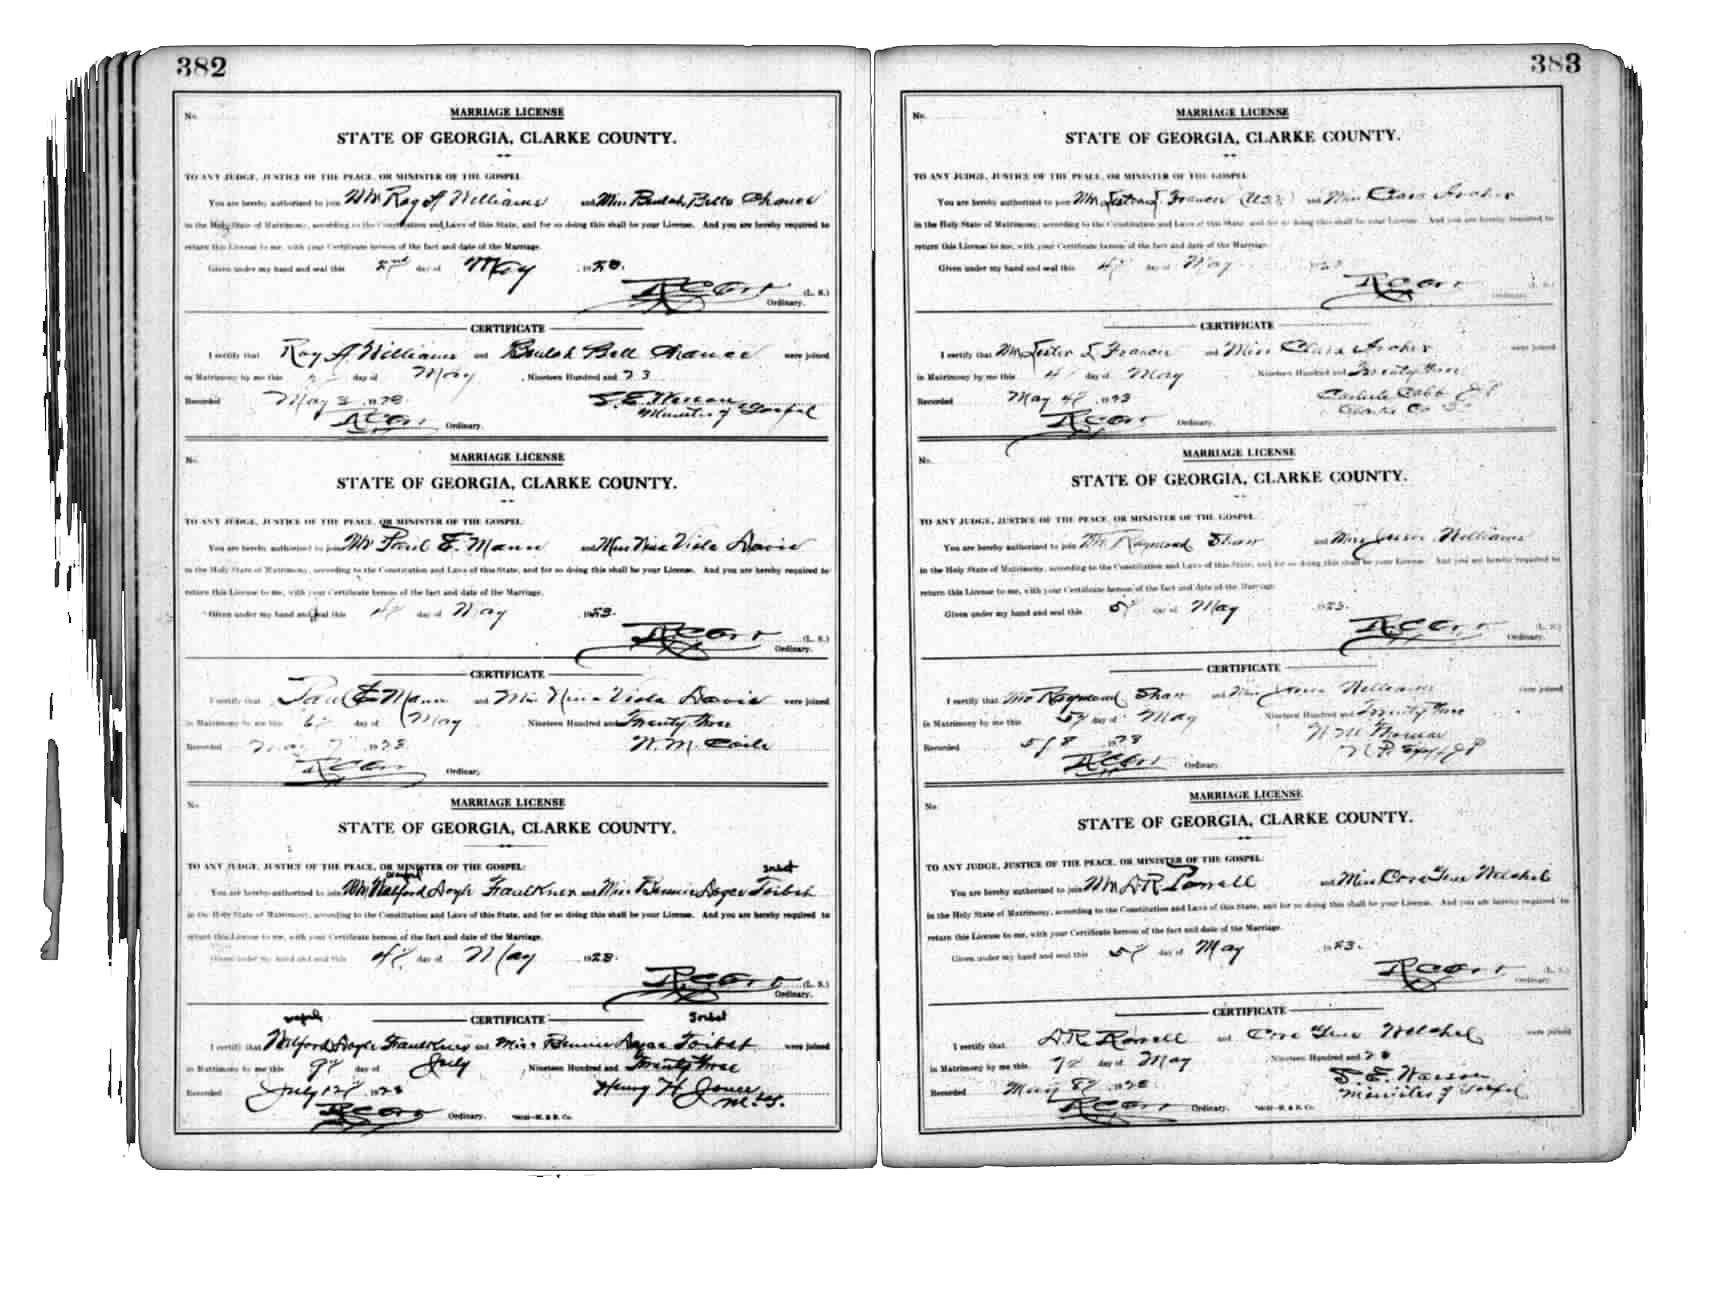 382
No.
MARRIAGE LICENSE
STATE OF GEORGIA, CLARKE COUNTY.
TO ANY JUDGE, JUSTICE OF THE PEACE, OR MINISTER OF THE GOSPEL
You are hereby authorized to join Mr. Roy A. Williams and Miss Beulah Belle Chance
in the Holy State of Matrimony, according to the Constitution and Laws of this State, and for so doing this shall be your License. And you are hereby required to
return this License to me, with your Certificate hereon of the fact and date of the Marriage.
Given under my hand and seal this 2nd day of May 1923.
R C Orr (L. S.)
Ordinary.
CERTIFICATE
I certify that Roy A. Williams and Beulah Bell Chance were joined
in Matrimony by me this day of May, Nineteen Hundred and 23
Recorded May 3 1923. S. E. Wasson
Minister of Gospel
R C Orr Ordinary.
No.
MARRIAGE LICENSE
STATE OF GEORGIA, CLARKE COUNTY.
TO ANY JUDGE, JUSTICE OF THE PEACE, OR MINISTER OF THE GOSPEL:
You are hereby authorized to join Mr Paul E. Mann and Miss Nina Viola Davis
in the Holy State of Matrimony, according to the Constitution and Laws of this State, and for so doing this shall be your License. And you are hereby required to
return this License to me, with your Certificate hereon of the fact and date of the Marriage.
Given under my hand and seal this 4th day of May 1923.
R C Orr (L. S.)
Ordinary.
CERTIFICATE
I certify that Paul E Mann and Miss Nina Viola Davis were joined
in Matrimony by me this 6th day of May Nineteen Hundred and Twenty three
Recorded May 7th 1923. W. M. Coile
R C Orr Ordinary.
No.
MARRIAGE LICENSE
STATE OF GEORGIA, CLARKE COUNTY.
TO ANY JUDGE, JUSTICE OF THE PEACE, OR MINISTER OF THE GOSPEL:
You are hereby authorized to join Mr. Walford Doyle Faulkner and Miss Bennie Dyce
in the Holy State of Matrimony, according to the Constitution and Laws of this State, and for so doing this shall be your License. And you are hereby required to
return this License to me, with your Certificate hereon of the fact and date of the Marriage.
Given under my hand and seal this 4th day of May 1923.
R C Orr (L. S.)
Ordinary.
CERTIFICATE
I certify that Wilford Doyle Faulkner and Miss Bennie Dyce were joined
in Matrimony by me this 9th day of July, Nineteen Hundred and Twenty three
Recorded July 12th 1923 Henry H. Jones
M. G.
R C Orr Ordinary.
383
No.
MARRIAGE LICENSE
STATE OF GEORGIA, CLARKE COUNTY.
TO ANY JUDGE, JUSTICE OF THE PEACE, OR MINISTER OF THE GOSPEL
You are hereby authorized to join Mr. Lester L. Francis and Miss Clara Archer
in the Holy State of Matrimony, according to the Constitution and Laws of this State, and for so doing this shall be your License. And you are hereby required to
return this License to me, with your Certificate hereon of the fact and date of the Marriage.
Given under my hand and seal this 4th day of May 1923
R C Orr (L. S.)
Ordinary.
CERTIFICATE
I certify that Mr. Lester L Francis and Miss Clara Archer were joined
in Matrimony by me this 4th day of May, Nineteen Hundred and Twenty three
Recorded May 4th 1923 Carlisle Cobb J P
Clarke Co
R C Orr Ordinary.
No.
MARRIAGE LICENSE
STATE OF GEORGIA, CLARKE COUNTY.
TO ANY JUDGE, JUSTICE OF THE PEACE, OR MINISTER OF THE GOSPEL
You are hereby authorized to join Mr. Raymond Shaw and Miss Williams
in the Holy State of Matrimony, according to the Constitution and Laws of this State, and for so doing this shall be your License. And you are hereby required to
return this License to me, with your Certificate hereon of the fact and date of the Marriage.
Given under my hand and seal this 5th day of May 1923.
R C Orr (L. S.)
Ordinary.
CERTIFICATE
I certify that Mr Raymond Shaw and Miss Williams were joined
in Matrimony by me this 5th day of May Nineteen Hundred and Twenty three
Recorded 5/8 1923 W. W. Thomas
N. P. Ex off J P
R C Orr Ordinary.
No.
MARRIAGE LICENSE
STATE OF GEORGIA, CLARKE COUNTY.
TO ANY JUDGE, JUSTICE OF THE PEACE, OR MINISTER OF THE GOSPEL:
You are hereby authorized to join Mr. A. R. and Miss Welchel
in the Holy State of Matrimony, according to the Constitution and Laws of this State, and for so doing this shall be your License. And you are hereby required to
return this License to me, with your Certificate hereon of the fact and date of the Marriage.
Given under my hand and seal this 5th day of May 1923.
R C Orr (L. S.)
Ordinary.
CERTIFICATE
I certify that A. R. and Welchel were joined
in Matrimony by me this 7th day of May Nineteen Hundred and 23
Recorded May 8th 1923 S. E. Wasson
Minister of Gospel
R C Orr Ordinary.